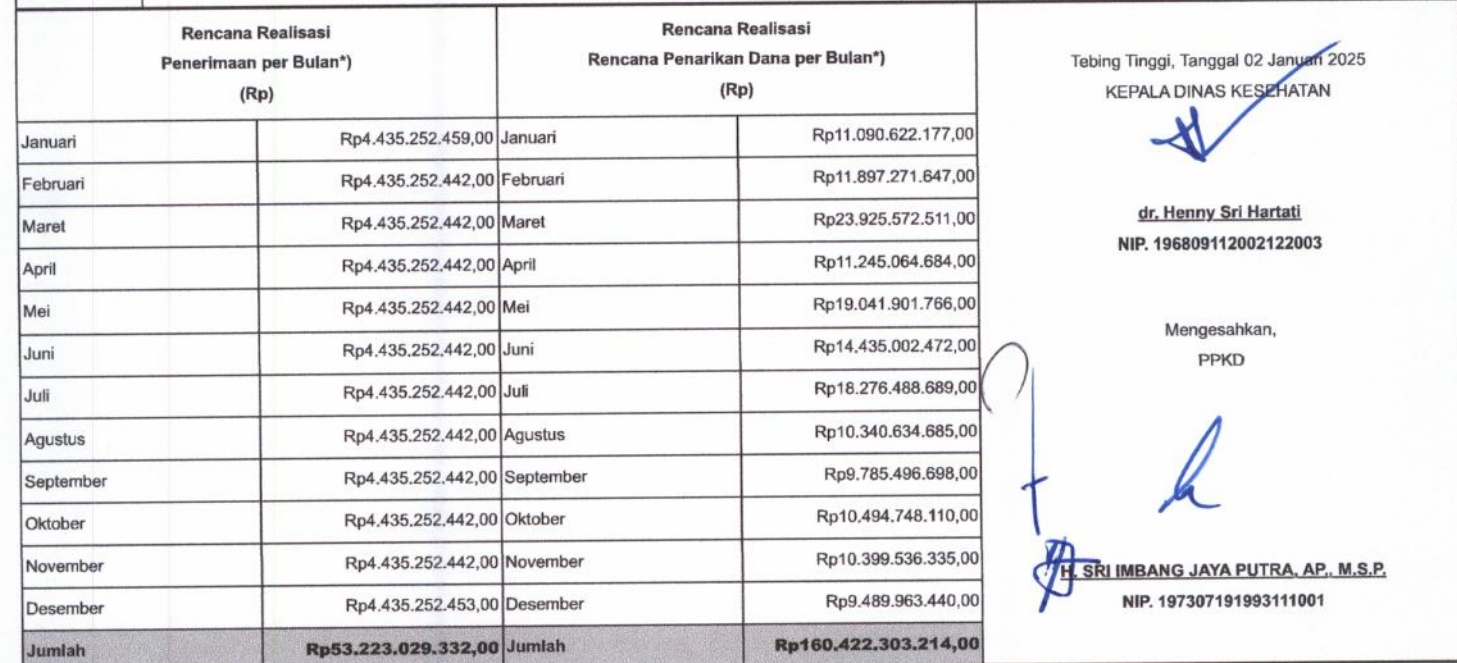 Rencana Realisasi
Penerimaan per Bulan*)
(Rp)
Rencana Realisasi
Rencana Penarikan Dana per Bulan*)
(Rp)
Januari Rp4.435.252.459,00 Januari Rp11.090.622.177,00
Februari Rp4.435.252.442,00 Februari Rp11.897.271.647,00
Maret Rp4.435.252.442,00 Maret Rp23.925.572.511,00
April Rp4.435.252.442,00 April Rp11.245.064.684,00
Mei Rp4.435.252.442,00 Mei Rp19.041.901.766,00
Juni Rp4.435.252.442,00 Juni Rp14.435.002.472,00
Juli Rp4.435.252.442,00 Juli Rp18.276.488.689,00
Agustus Rp4.435.252.442,00 Agustus Rp10.340.634.685,00
September Rp4.435.252.442,00 September Rp9.785.496.698,00
Oktober Rp4.435.252.442,00 Oktober Rp10.494.748.110,00
November Rp4.435.252.442,00 November Rp10.399.536.335,00
Desember Rp4.435.252.453,00 Desember Rp9.489.963.440,00
Jumlah Rp53.223.029.332,00 Jumlah Rp160.422.303.214,00
Tebing Tinggi, Tanggal 02 Januari 2025
KEPALA DINAS KESEHATAN
dr. Henny Sri Hartati
NIP. 196809112002122003
Mengesahkan,
PPKD
H. SRI IMBANG JAYA PUTRA, AP., M.S.P.
NIP. 197307191993111001